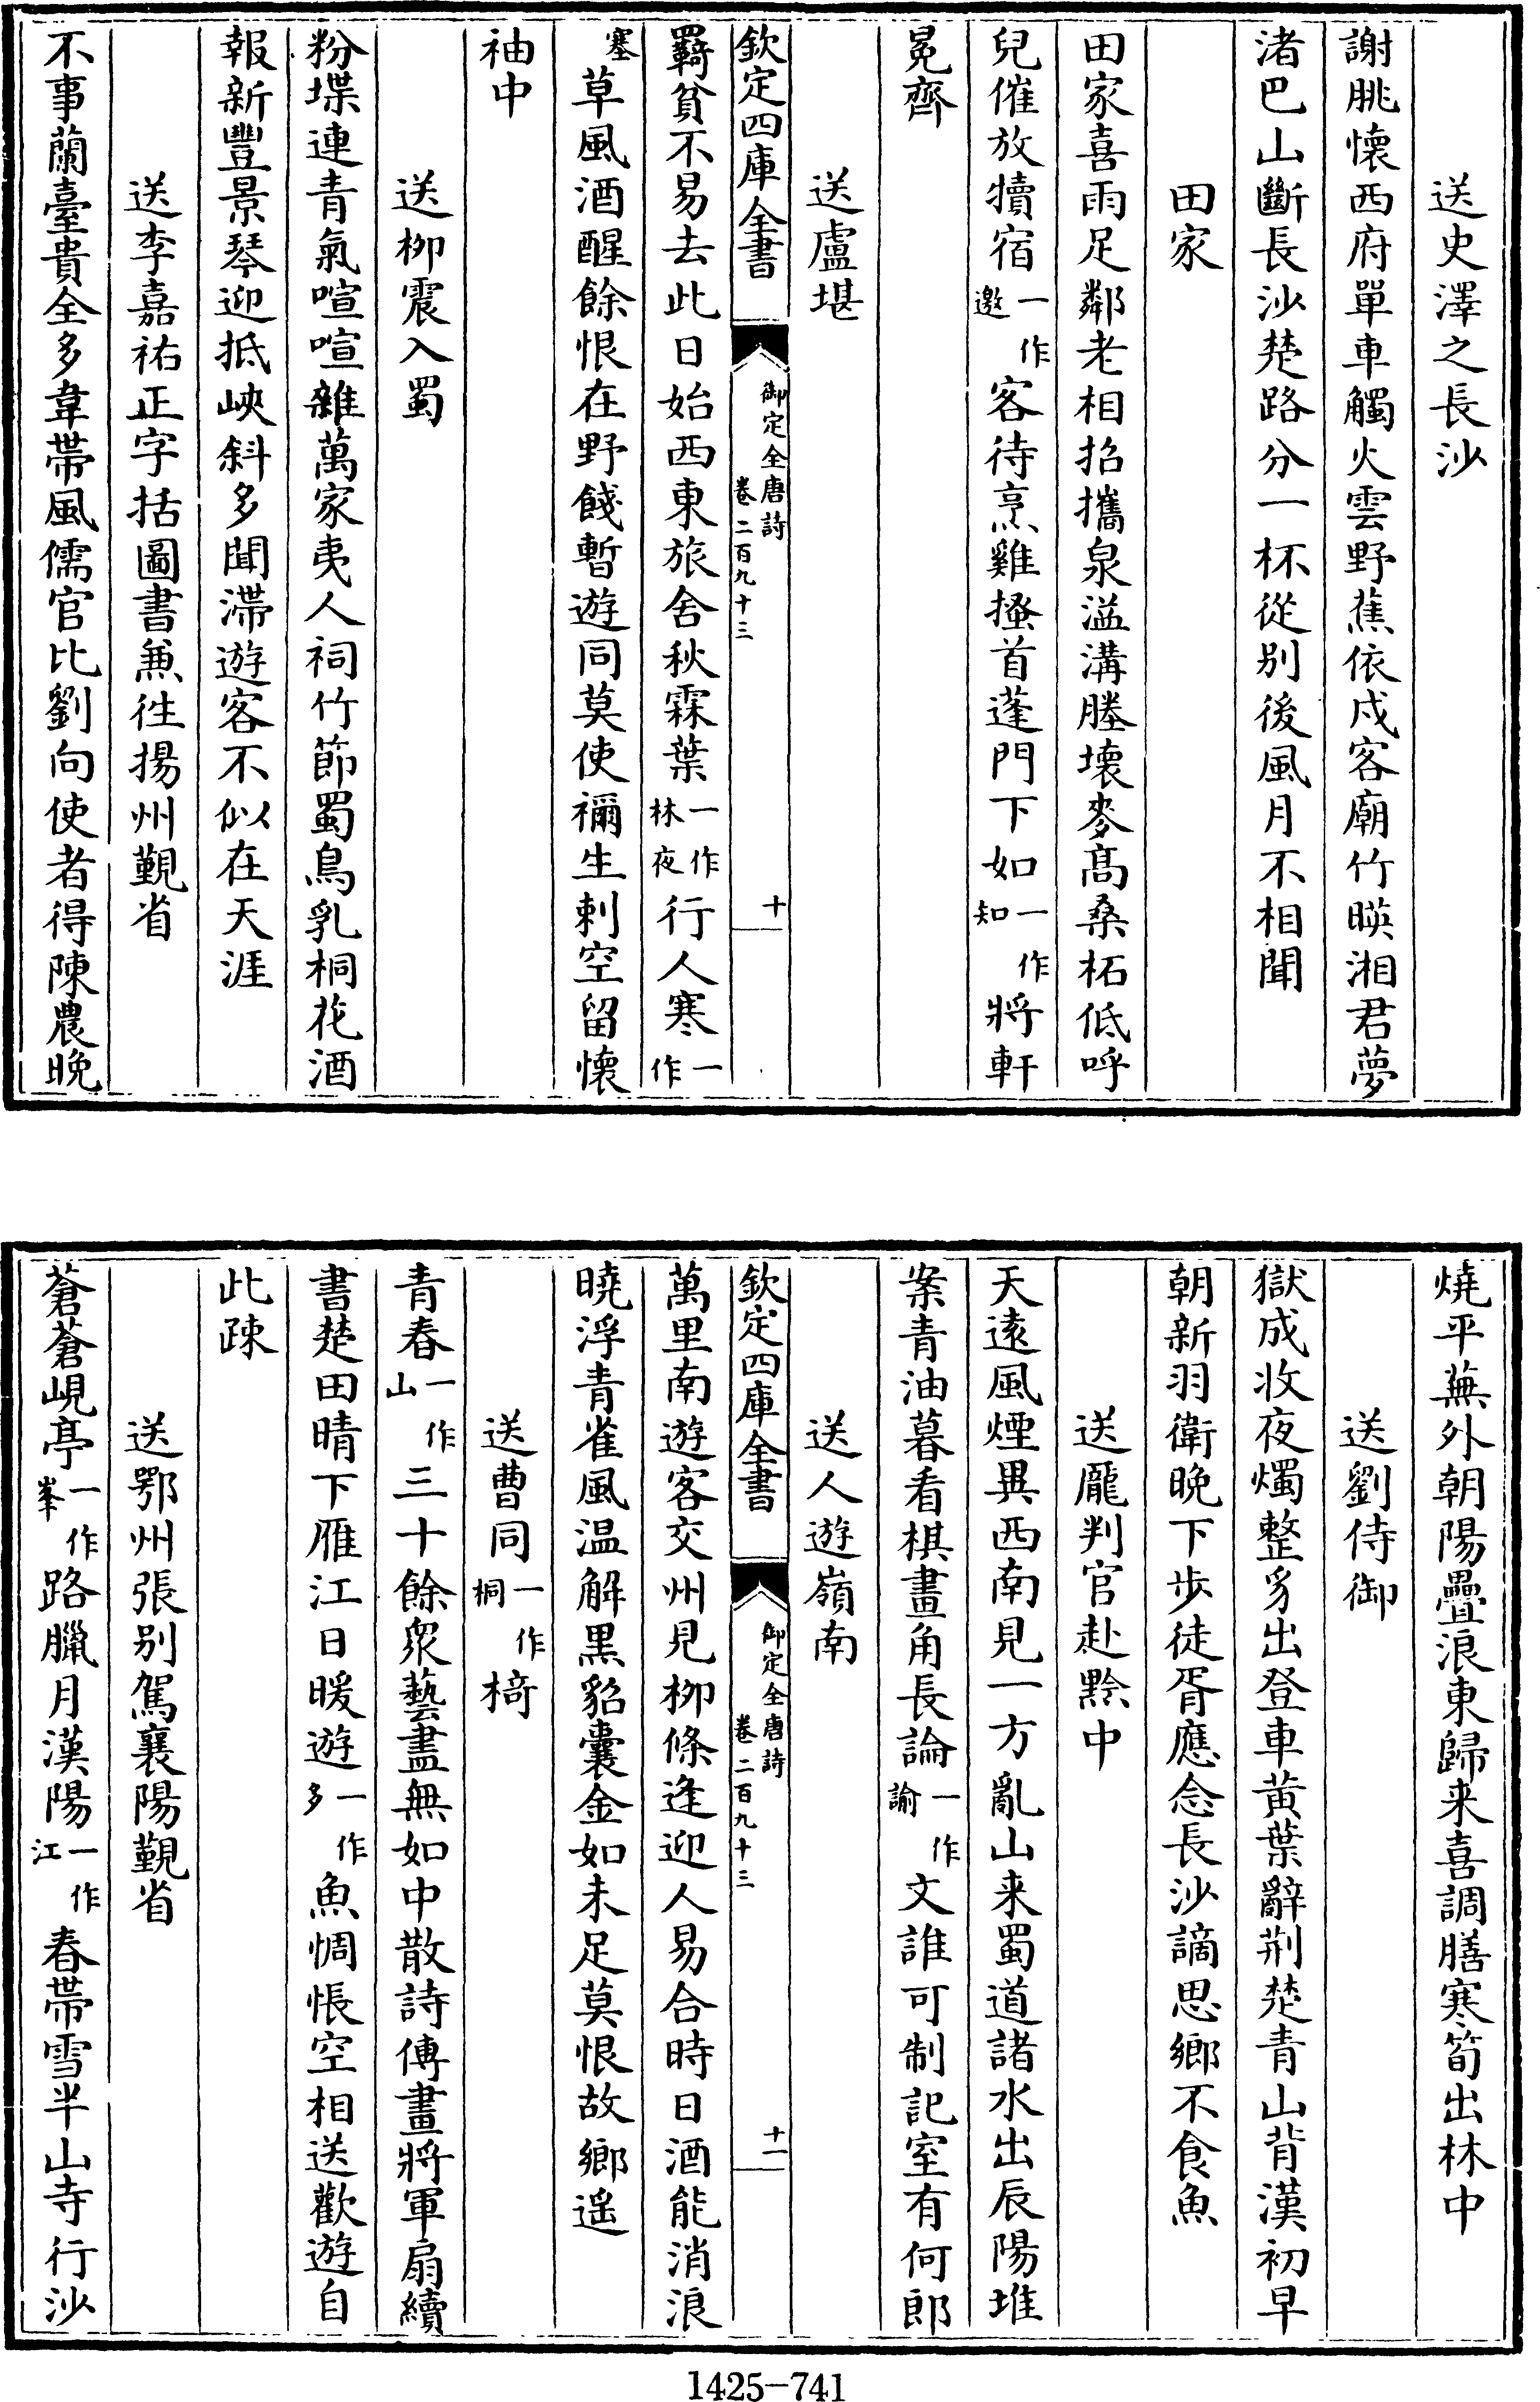 送史澤之長沙
謝朓懷西府單車觸火雲野蕉依戍客廟竹暎湘君夢
渚巴山斷長沙楚路分一杯從别後風月不相聞
田家
田家喜雨足鄰老相招攜泉溢溝塍壞麥髙桑柘低呼
兒催放犢宿一作邀客待烹雞搔首蓬門下如一作知將軒
冕齊
送盧堪
欽定四庫全書
御定全唐詩
卷二百九十三
十
羇貧不易去此日始西東旅舎秋霖葉一作林夜行人寒一作
塞草風酒醒餘恨在野餞暫遊同莫使禰生刺空留懷
袖中
送柳震入蜀
粉堞連青氣喧喧雜萬家夷人祠竹節蜀鳥乳桐花酒
報新豐景琴迎抵峽斜多聞滯遊客不似在天涯
送李嘉祐正字括圖書兼徃揚州覲省
不事蘭臺貴全多韋帶風儒官比劉向使者得陳農晚
燒平蕪外朝陽疊浪東歸来喜調膳寒筍出林中
送劉侍御
獄成收夜燭整豸出登車黄葉辭荆楚青山背漢初早
朝新羽衛晚下步徒胥應念長沙謫思鄉不食魚
送龎判官赴黔中
天逺風煙異西南見一方亂山来蜀道諸水出辰陽堆
案青油暮看棋畫角長論一作諭文誰可制記室有何郎
送人遊嶺南
欽定四庫全書
御定全唐詩
卷二百九十三
十一
萬里南遊客交州見柳條逢迎人易合時日酒能消浪
曉浮青雀風温解黒貂囊金如未足莫恨故鄉遥
送曹同一作桐椅
青春一作山三十餘衆藝盡無如中散詩傳畫將軍扇續
書楚田晴下雁江日暖遊一作多魚惆悵空相送歡遊自
此疎
送鄂州張别駕襄陽覲省
蒼蒼峴亭一作峯路臘月漢陽一作江春帶雪半山寺行沙
1425-741